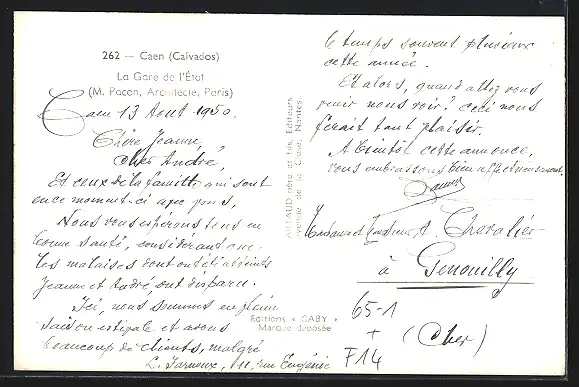 262 — Caen (Calvados)
La Gare de l'État
(M. Pacon, Architecte, Paris)
Caen 13 Aout 1950.
Chère Jeanne,
cher André,
Et ceux de la famille qui sont
en ce moment-ci avec vous,
Nous vous espérons tous en
bonne santé, considérant que
les malaises dont ont été atteints
Jeanne et André, ont disparu.
Ici, nous sommes en pleine
saison estivale et avons
beaucoup de clients, malgré
le temps souvent pluvieux
cette année.
Et alors, quand allez vous
venir nous voir? ceci nous
ferait tant plaisir.
A bientôt cette annonce,
vous embrassons bien affectueusement.
L. 11, rue Eugénie
Editions « GABY »
Marque déposée
ARTAUD père et fils, Editeurs
Nantes
Madame et Monsieur A. Chevalier
à Genouilly
(Cher)
65-1
+
F14